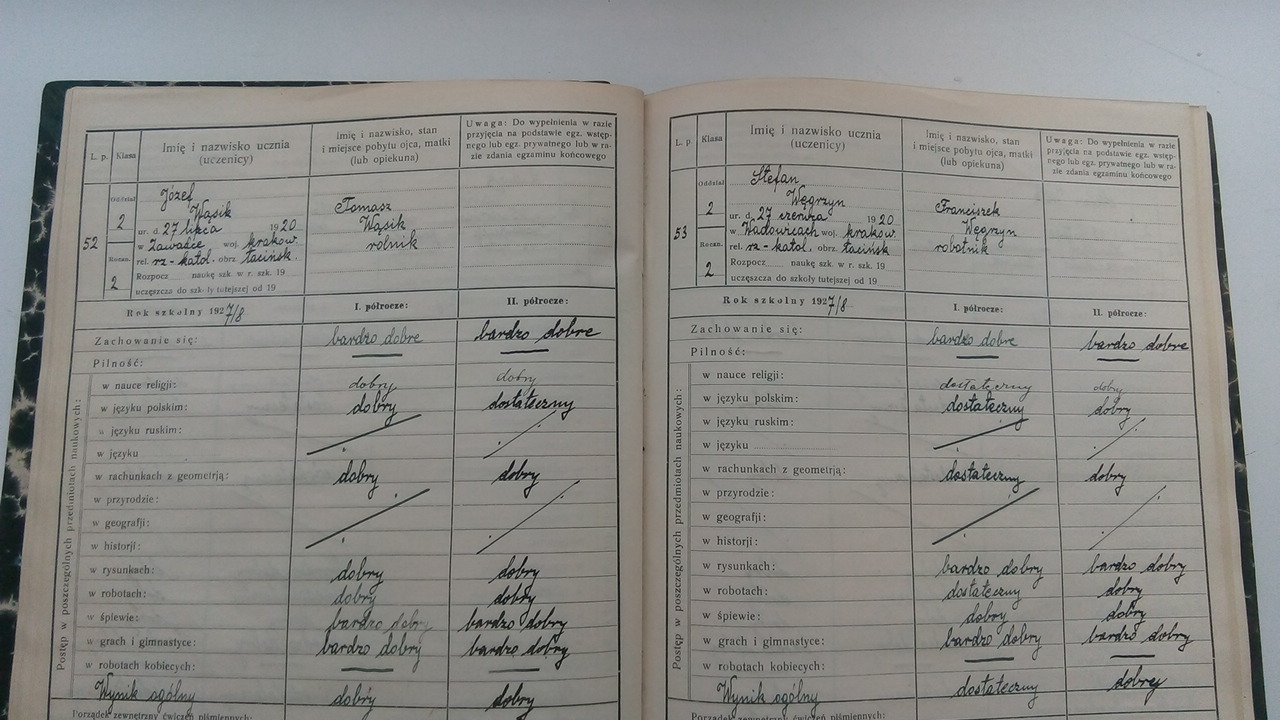 L. p.
Klasa
Imię i nazwisko ucznia
(uczenicy)
Imię i nazwisko, stan
i miejsce pobytu ojca, matki
(lub opiekuna)
Uwaga: Do wypełnienia w razie
przyjęcia na podstawie egz. wstęp-
nego lub egz. prywatnego lub w ra-
zie zdania egzaminu końcowego
52
Oddział
2
Roczn.
2
Józef
Wąsik
ur. d. 27 lipca 1920
w Zawadce woj. krakow.
rel. rz-katol. obrz. łacińsk.
Rozpocz. naukę szk. w r. szk. 19
uczęszcza do szkoły tutejszej od 19
Tomasz
Wąsik
rolnik
Rok szkolny 1927/8
I. półrocze:
II. półrocze:
Zachowanie się: bardzo dobre bardzo dobre
Pilność:
Postęp w poszczególnych przedmiotach naukowych:
w nauce religji: dobry dobry
w języku polskim: dobry dostateczny
w języku ruskim:
w języku
w rachunkach z geometrją: dobry dobry
w przyrodzie:
w geografji:
w historji:
w rysunkach: dobry dobry
w robotach: dobry dobry
w śpiewie: bardzo dobry bardzo dobry
w grach i gimnastyce: bardzo dobry bardzo dobry
w robotach kobiecych:
Wynik ogólny dobry dobry
Porządek zewnętrzny ćwiczeń piśmiennych:
L. p.
Klasa
Imię i nazwisko ucznia
(uczenicy)
Imię i nazwisko, stan
i miejsce pobytu ojca, matki
(lub opiekuna)
Uwaga: Do wypełnienia w razie
przyjęcia na podstawie egz. wstęp-
nego lub egz. prywatnego lub w ra-
zie zdania egzaminu końcowego
53
Oddział
2
Roczn.
2
Stefan
Węgrzyn
ur. d. 27 czerwca 1920
w Wadowicach woj. krakow.
rel. rz-katol. obrz. łacińsk.
Rozpocz. naukę szk. w r. szk. 19
uczęszcza do szkoły tutejszej od 19
Franciszek
Węgrzyn
robotnik
Rok szkolny 1927/8
I. półrocze:
II. półrocze:
Zachowanie się: bardzo dobre bardzo dobre
Pilność:
Postęp w poszczególnych przedmiotach naukowych:
w nauce religji: dostateczny dobry
w języku polskim: dostateczny dobry
w języku ruskim:
w języku
w rachunkach z geometrją: dostateczny dobry
w przyrodzie:
w geografji:
w historji:
w rysunkach: bardzo dobry bardzo dobry
w robotach: dostateczny dobry
w śpiewie: dobry dobry
w grach i gimnastyce: bardzo dobry bardzo dobry
w robotach kobiecych:
Wynik ogólny dostateczny dobry
Porządek zewnętrzny ćwiczeń piśmiennych: